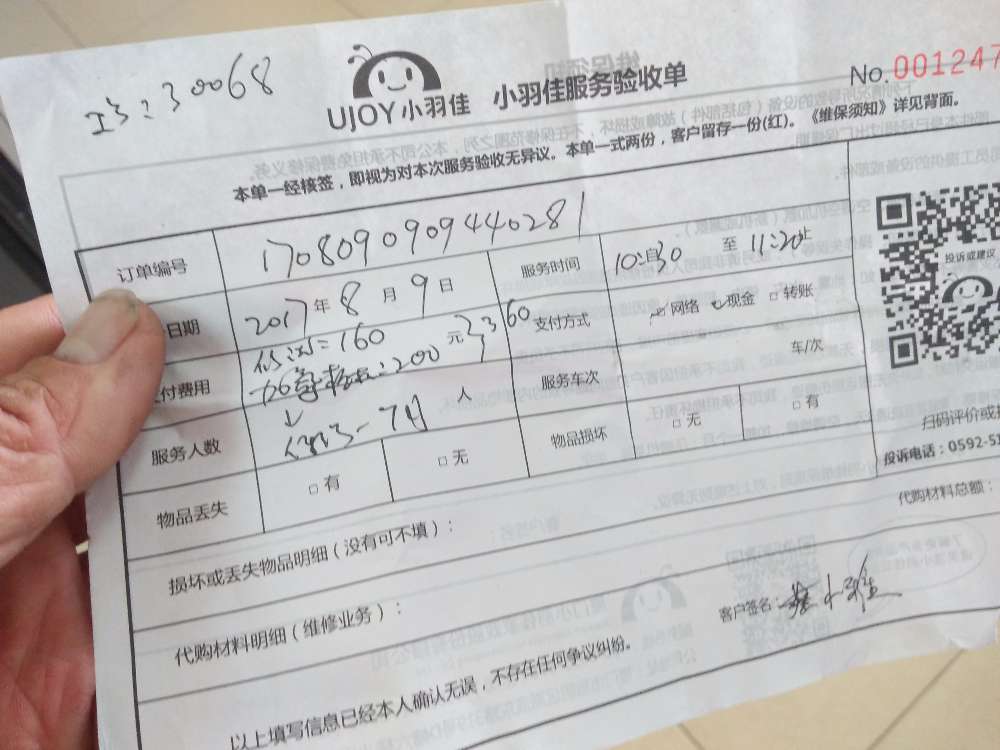 工号:30068
UJOY小羽佳 小羽佳服务验收单 No.001247
本单一经核签,即视为对本次服务验收无异议。本单一式两份,客户留存一份(红)。《维保须知》详见背面。
订单编号 1708090909440281 服务时间 10:30 至 11:20止
日期 2017年8月9日 支付方式 网络 现金 □转账
付费用 160 200元 360 服务车次 车/次
服务人数 人 物品损坏 □无 □有
物品丢失 □有 □无
投诉或建议
扫码评价或
投诉电话:0592-51
损坏或丢失物品明细(没有可不填):
代购材料总额:
代购材料明细(维修业务):
客户签名:
以上填写信息已经本人确认无误,不存在任何争议纠纷。